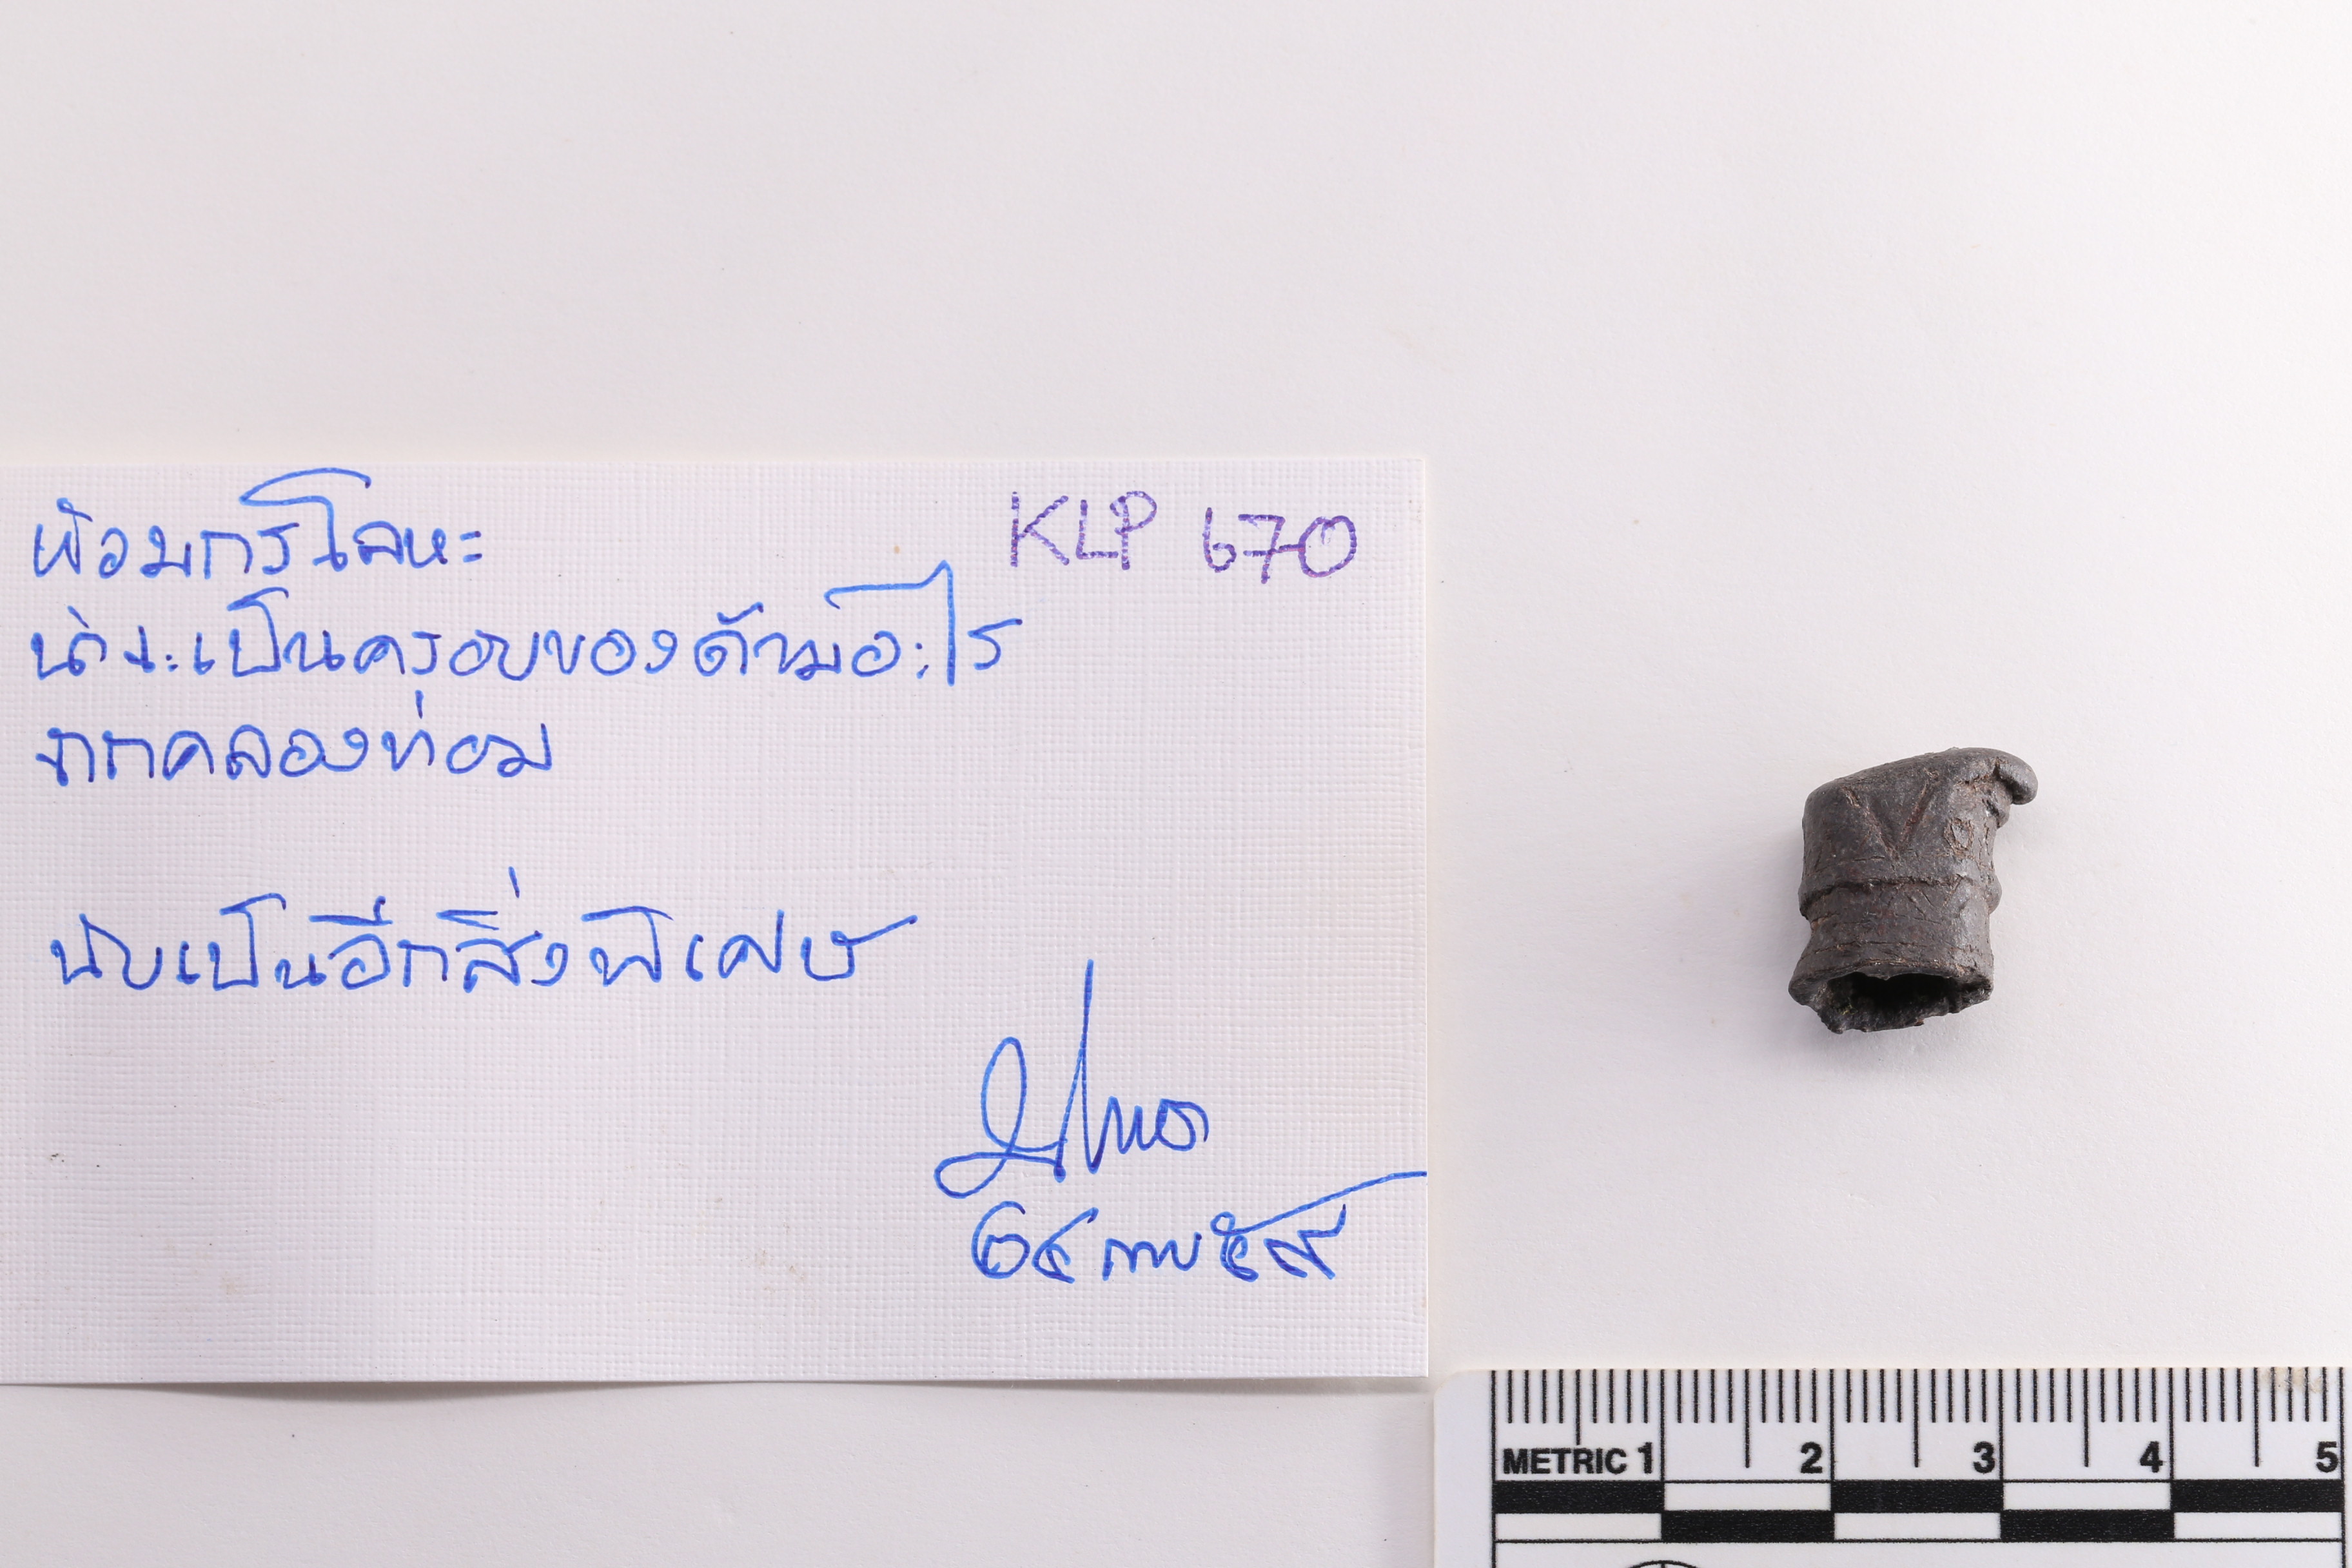 KLP 670
โลหะ
น่าจะเป็นครอบของด้ามอะไร
จากคลองท่อม
นับเป็นอีกสิ่งพิเศษ
๒๔ กพ ๕๙
METRIC 1 2 3 4 5